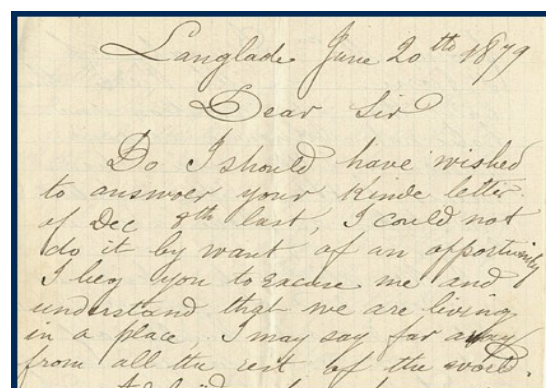 Langlade June 20th 1879
Dear Sir
Do I should have wished
to answer your Kinde letter
of Dec 8th last, I could not
do it by want of an opportunity
I beg you to Excuse me and
understand that we are living
in a place I may say far away
from all the rest of the world.